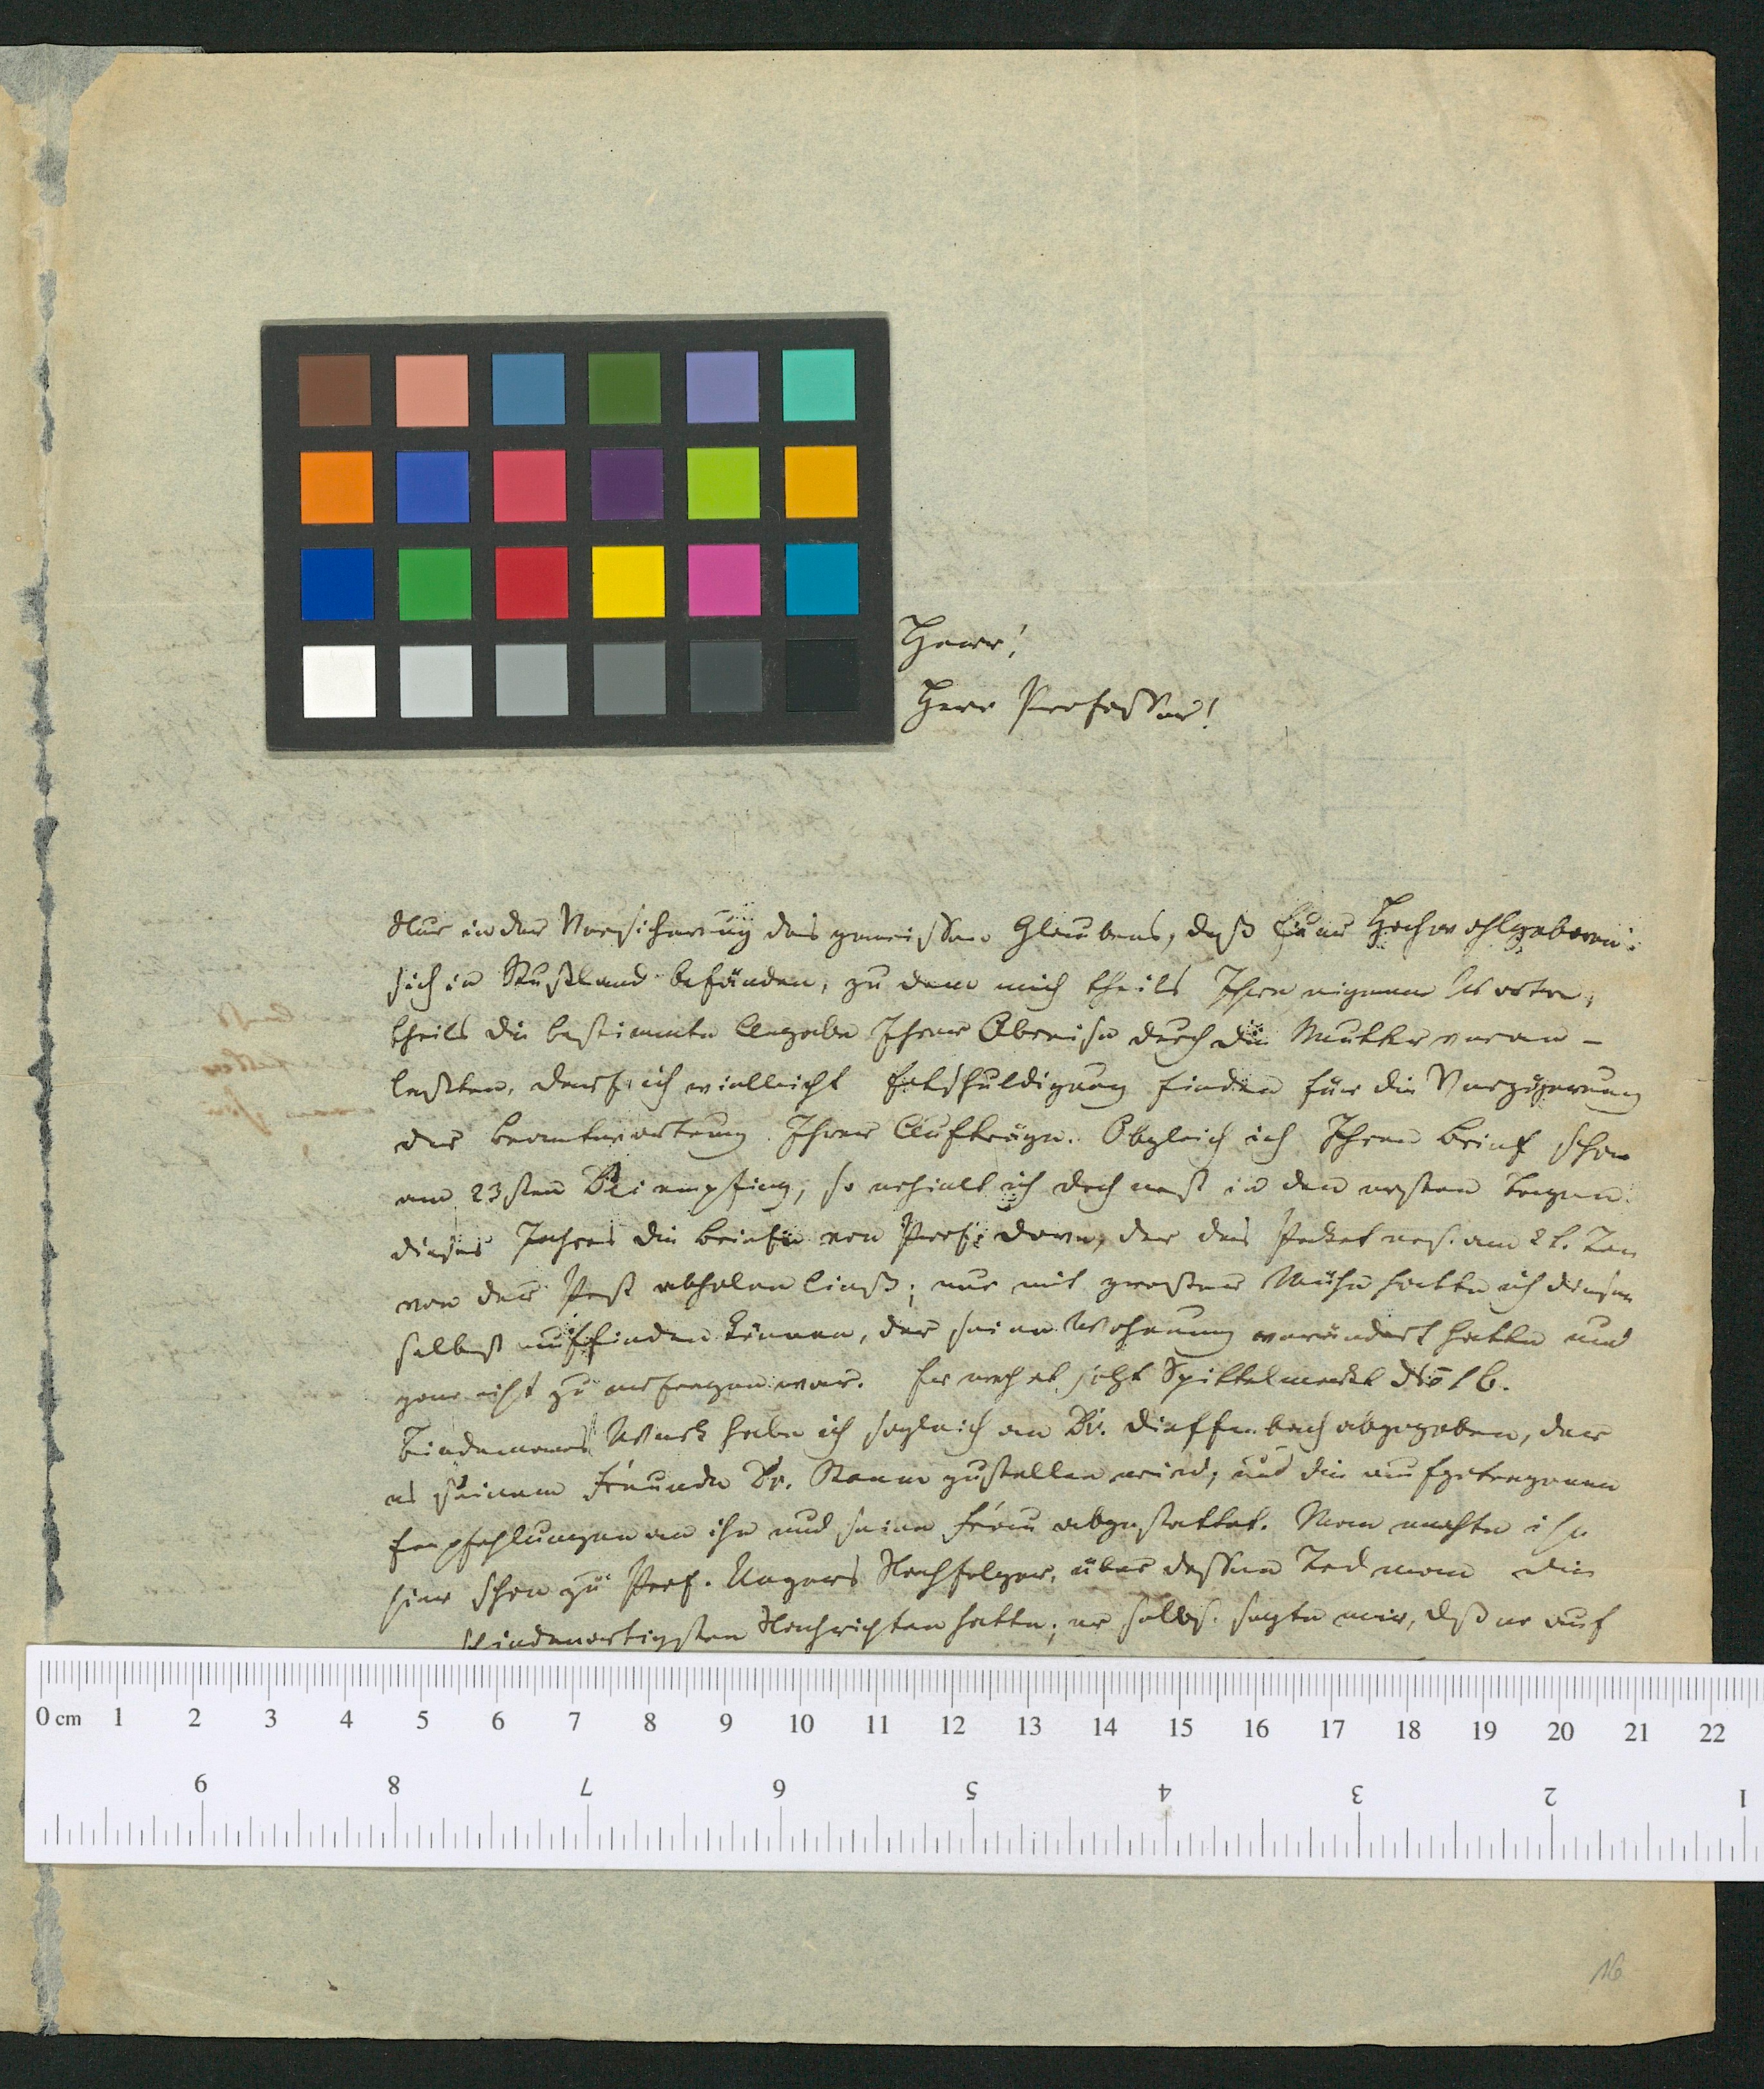 Herr!
Herr Professor!
Nur in der Versicherung des gewissen Glaubens, daß Euer Hochwohlgeboren
sich in Rußland befänden, zu dem mich theils Ihre eigenen Worte,
theils die bestimmte Angabe Ihrer Abreise durch die Mutter veran-
laßten, darf ich vielleicht Entschuldigung finden für die Verzögerung
der Beantwortung Ihrer Aufträge. Obgleich ich Ihren Brief schon
am 23sten empfing, so erhielt ich doch erst in den ersten Tagen
dieses Jahres die Briefe von Prof. Dove, der das Packet erst am
von der Post abholen ließ; nur mit großer Mühe hatte ich diesen
selbst auffinden können, der seine Wohnung verändert hatte und
gar nicht zu erfragen war. Er wohnt jetzt Spittelmarkt No 16.
Werk habe ich sogleich an Dr. Dieffenbach abgegeben, der
es seinem Freunde Dr. zustellen wird, und die aufgetragenen
Empfehlungen an ihn und seine Frau abgestattet. Man machte ihn
hier schon zu Prof. Ungers Nachfolger, über dessen Tod man die
Nachrichten hatte; er selbst sagte mir, daß er auf
0 cm 1 2 3 4 5 6 7 8 9 10 11 12 13 14 15 16 17 18 19 20 21 22
9 8 7 6 5 4 3 2 1
16